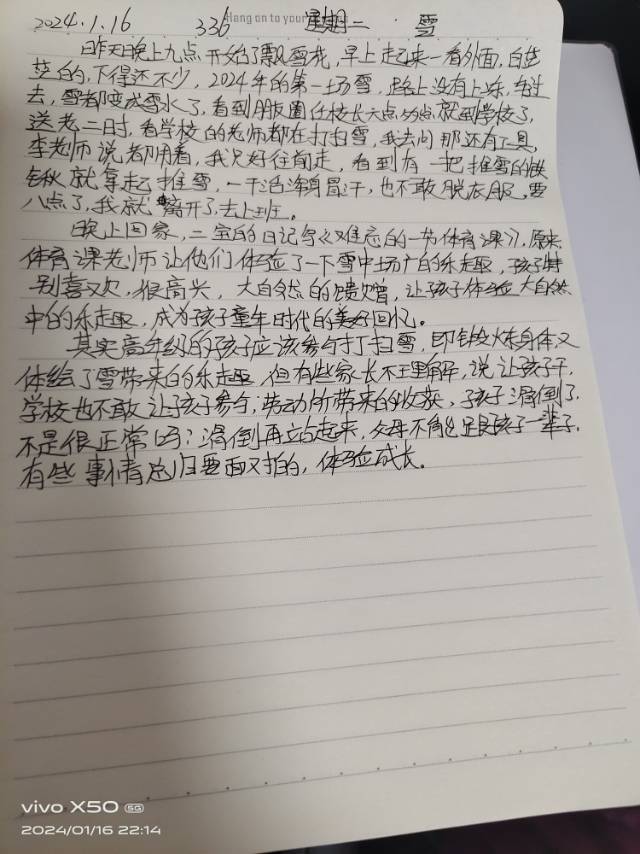 2024.1.16 336 星期二 雪
Hang on to your
昨天晚上九点开始了飘雪花,早上起来一看外面,白茫
茫的,下得还不少,2024年的第一场雪,路上没有上冻,车过
去,雪都变成雪水了,看到朋友圈任校长六点多点就到学校了,
送老二时,看学校的老师都在打扫雪,我去问那还有工具,
李老师说都用着,我只好往前走,看到有一把推雪的铁
锹就拿起推雪,一干活浑身冒汗,也不敢脱衣服,要
八点了,我就离开了,去上班。
晚上回家,二宝的日记写《难忘的一节体育课》,原来
体育课老师让他们体验了一下雪中的乐趣,孩子特
别喜欢,很高兴,大自然的馈赠,让孩子体验大自然
中的乐趣,成为孩子童年时代的美好回忆。
其实高年级的孩子应该参与打扫雪,即锻炼身体,又
体验了雪带来的乐趣,但有些家长不理解,说让孩子干,
学校也不敢让孩子参与,劳动所带来的收获,孩子滑倒了,
不是很正常吗?滑倒再站起来,父母不能跟孩子一辈子,
有些事情总归要面对的,体验成长。
vivo X50 5G
2024/01/16 22:14